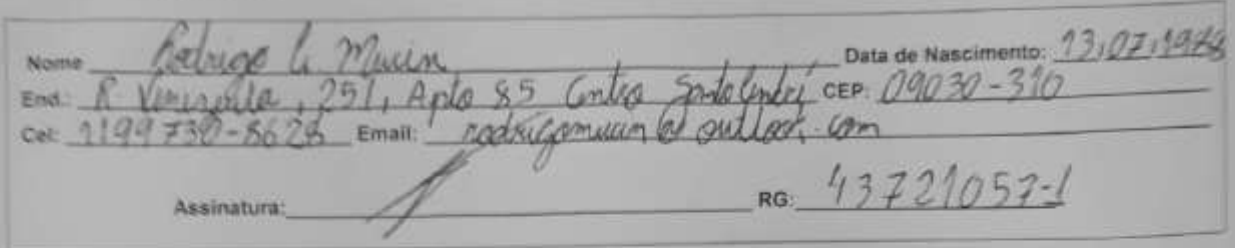 Nome Rodrigo G Mucin Data de Nascimento: 13/07/1988
End.: R Venezuela, 251, Apto 85 Centro Santo André CEP: 09030-310
Cel: 1199730-8628 Email: rodrigomucin@outlook.com
Assinatura: RG: 43721057-1